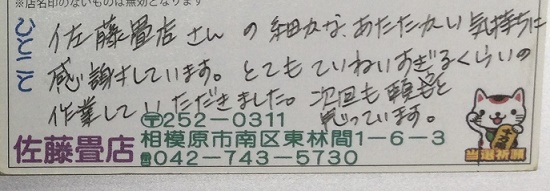 ※店名印のないものは無効となります
ひとこと
佐藤畳店さんの細かな、あたたかい気持ちに
感謝しています。とてもていねいすぎるくらいの
作業していただきました。次回も頼もうと
思っています。
〒252-0311
佐藤畳店 相模原市南区東林間1-6-3
☎042-743-5730
当選祈願